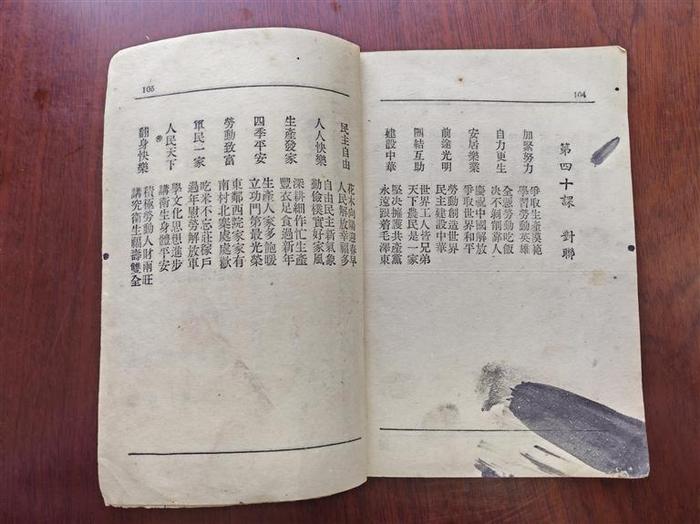 104
第四十課 對聯
加緊努力
爭取生產模範
學習勞動英雄
自力更生
全憑勞動吃飯
決不剝削靠人
安居樂業
慶祝中國解放
爭取世界和平
前途光明
勞動創造世界
民主建設中華
團結互助
世界工人皆兄弟
天下農民是一家
建設中華
堅決擁護共產黨
永遠跟着毛澤東
105
民主自由
花木向陽迎春早
人民解放幸福多
人人快樂
自由民主新氣象
勤儉樸實好家風
生產發家
深耕細作忙生產
豐衣足食過新年
四季平安
生產人家多飽暖
立功門第最光榮
勞動致富
東鄰西院家家有
南村北寨處處歡
軍民一家
吃米不忘莊稼戶
過年慰勞解放軍
人民天下
學文化思想進步
講衛生身體平安
翻身快樂
積極勞動人財兩旺
講究衛生福壽雙全